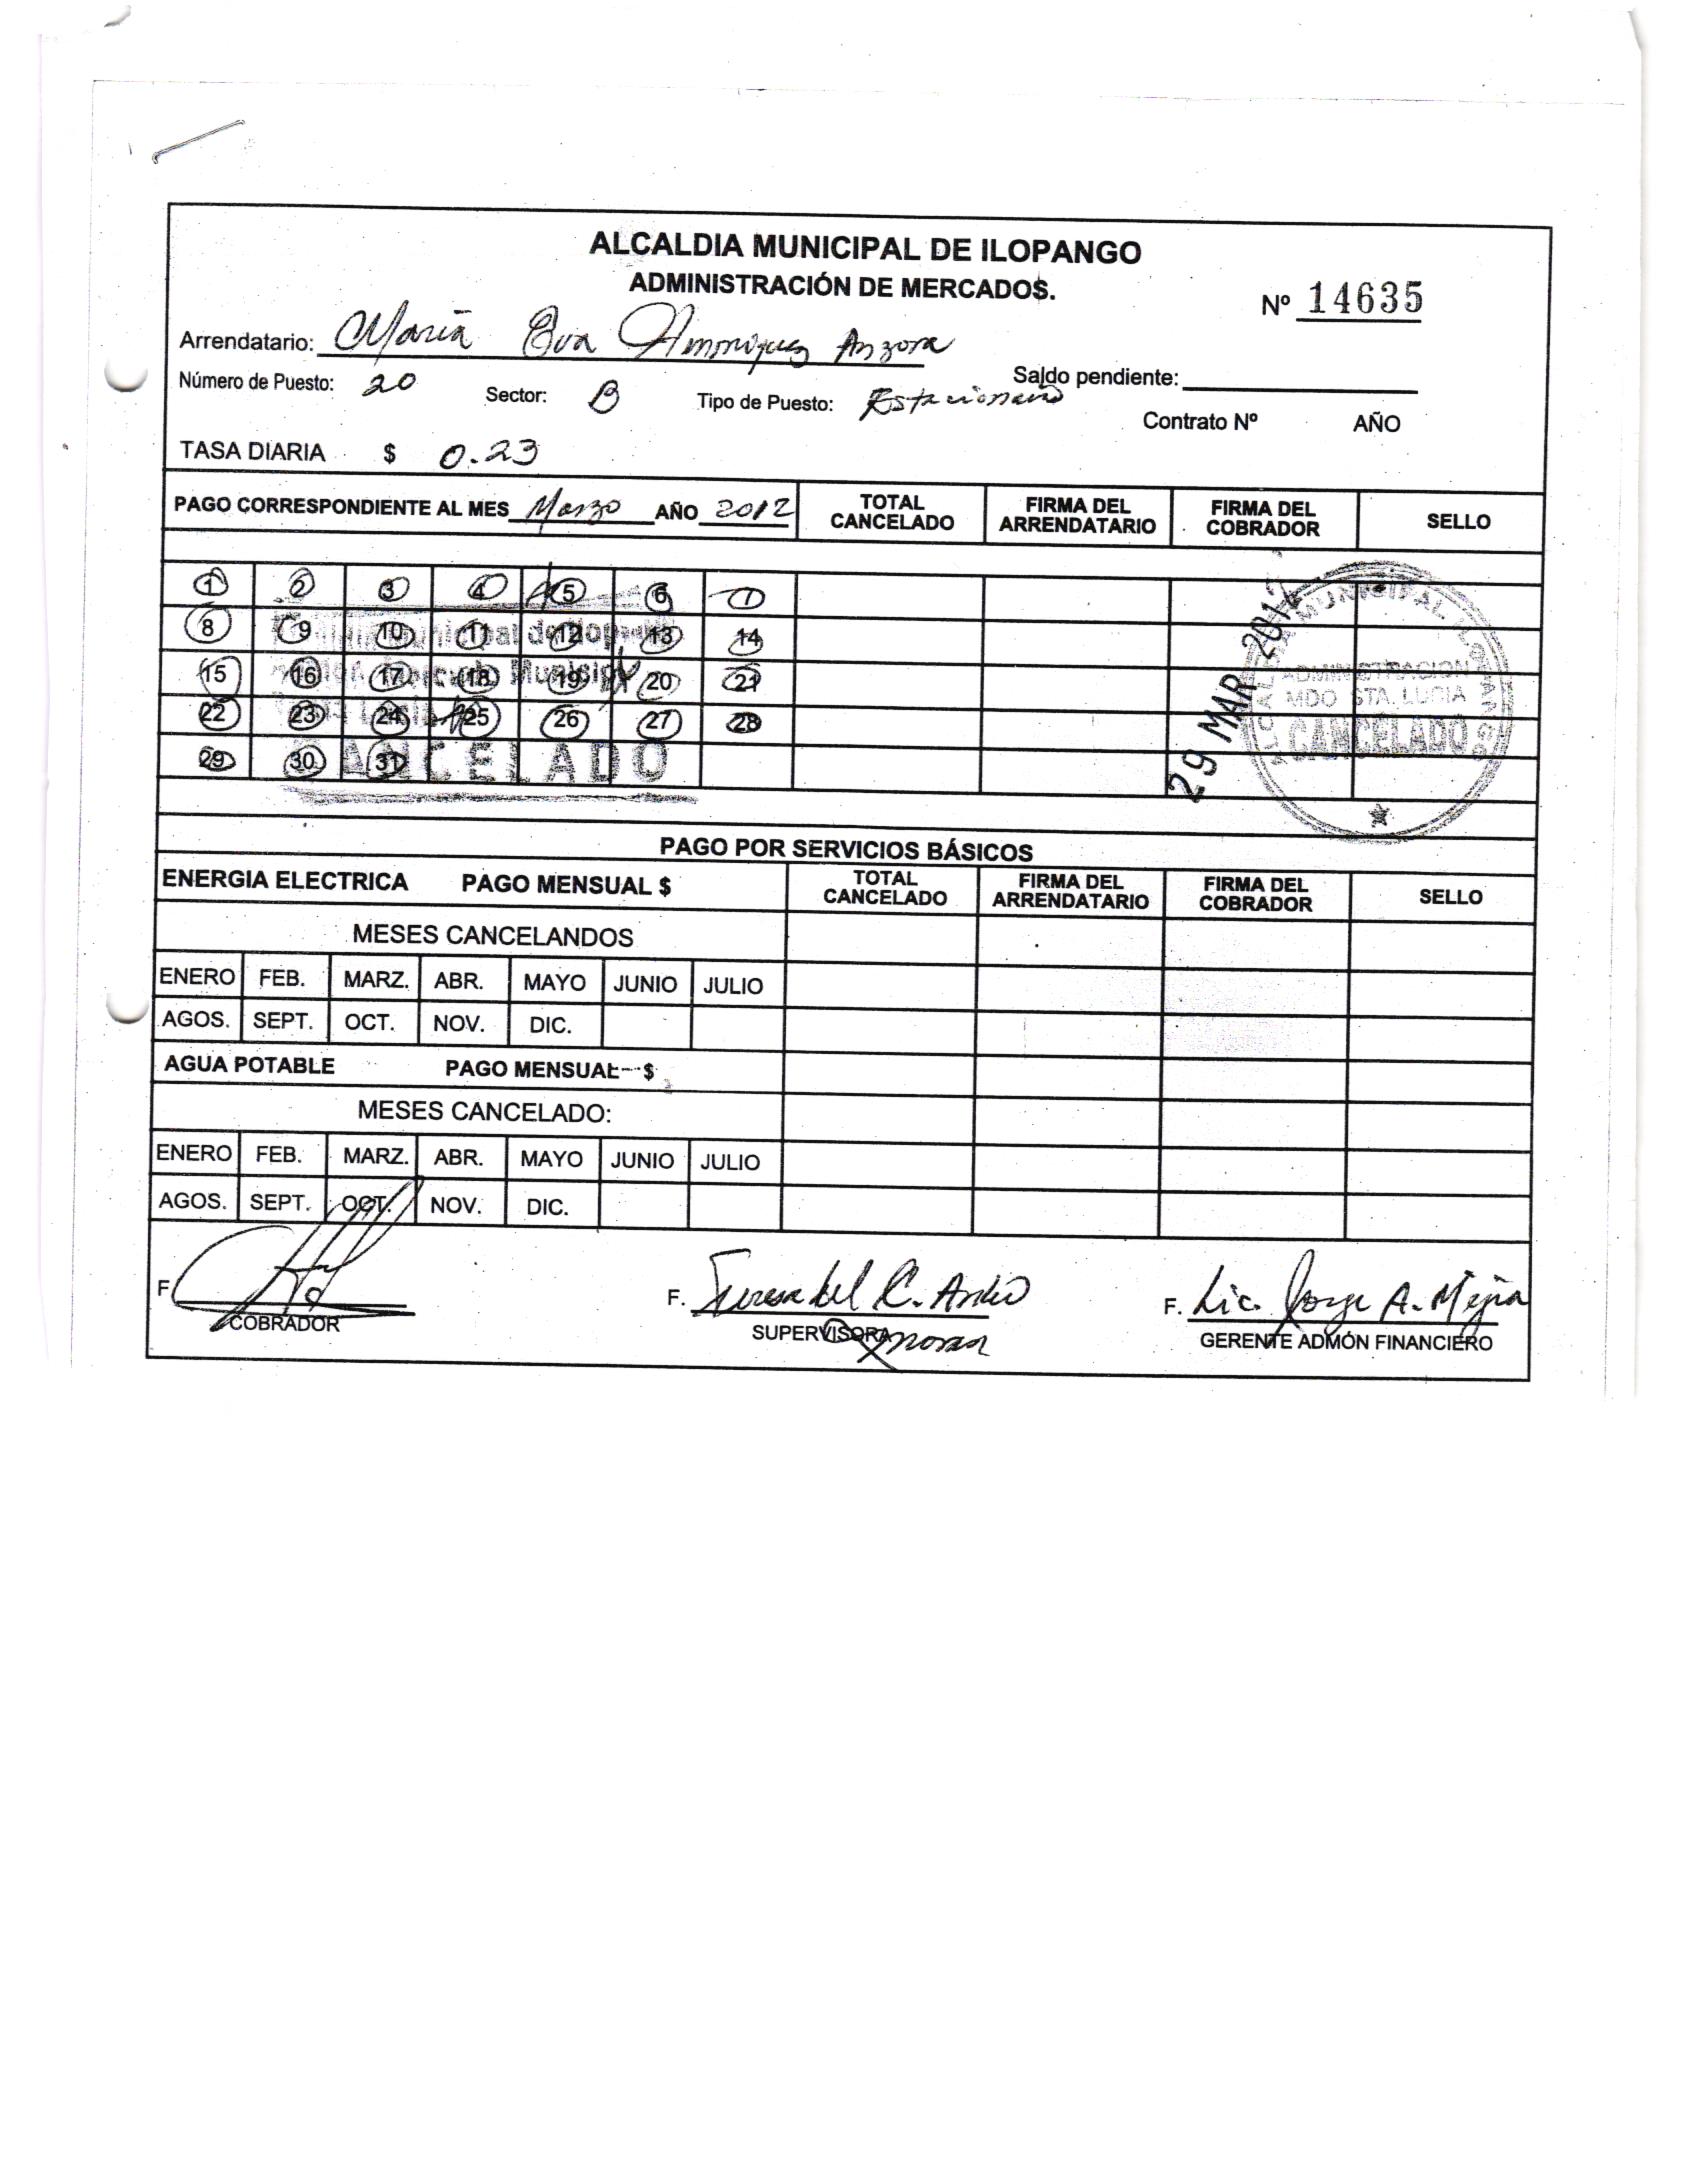 ALCALDIA MUNICIPAL DE ILOPANGO
ADMINISTRACIÓN DE MERCADOS.
Nº 14635
Arrendatario: Maria Eva Anzora
Saldo pendiente:
Número de Puesto: 20 Sector: B Tipo de Puesto: Estacionario
Contrato Nº AÑO
TASA DIARIA $ 0.23
PAGO CORRESPONDIENTE AL MES Marzo AÑO 2012 TOTAL CANCELADO FIRMA DEL ARRENDATARIO FIRMA DEL COBRADOR SELLO
1 2 3 4 5 6 7
8 9 10 11 12 13 14
15 16 17 18 19 20 21
22 23 24 25 26 27 28
29 30 31
CANCELADO
29 MAR 2012
ADMINISTRACION
MDO STA. LUCIA
CANCELADO
PAGO POR SERVICIOS BÁSICOS
ENERGIA ELECTRICA PAGO MENSUAL $ TOTAL CANCELADO FIRMA DEL ARRENDATARIO FIRMA DEL COBRADOR SELLO
MESES CANCELANDOS
ENERO FEB. MARZ. ABR. MAYO JUNIO JULIO
AGOS. SEPT. OCT. NOV. DIC.
AGUA POTABLE PAGO MENSUAL $
MESES CANCELADO:
ENERO FEB. MARZ. ABR. MAYO JUNIO JULIO
AGOS. SEPT. OCT. NOV. DIC.
F. F. Teresa del C. F. Lic. Jorge A. Mejia
COBRADOR SUPERVISORA GERENTE ADMÓN FINANCIERO